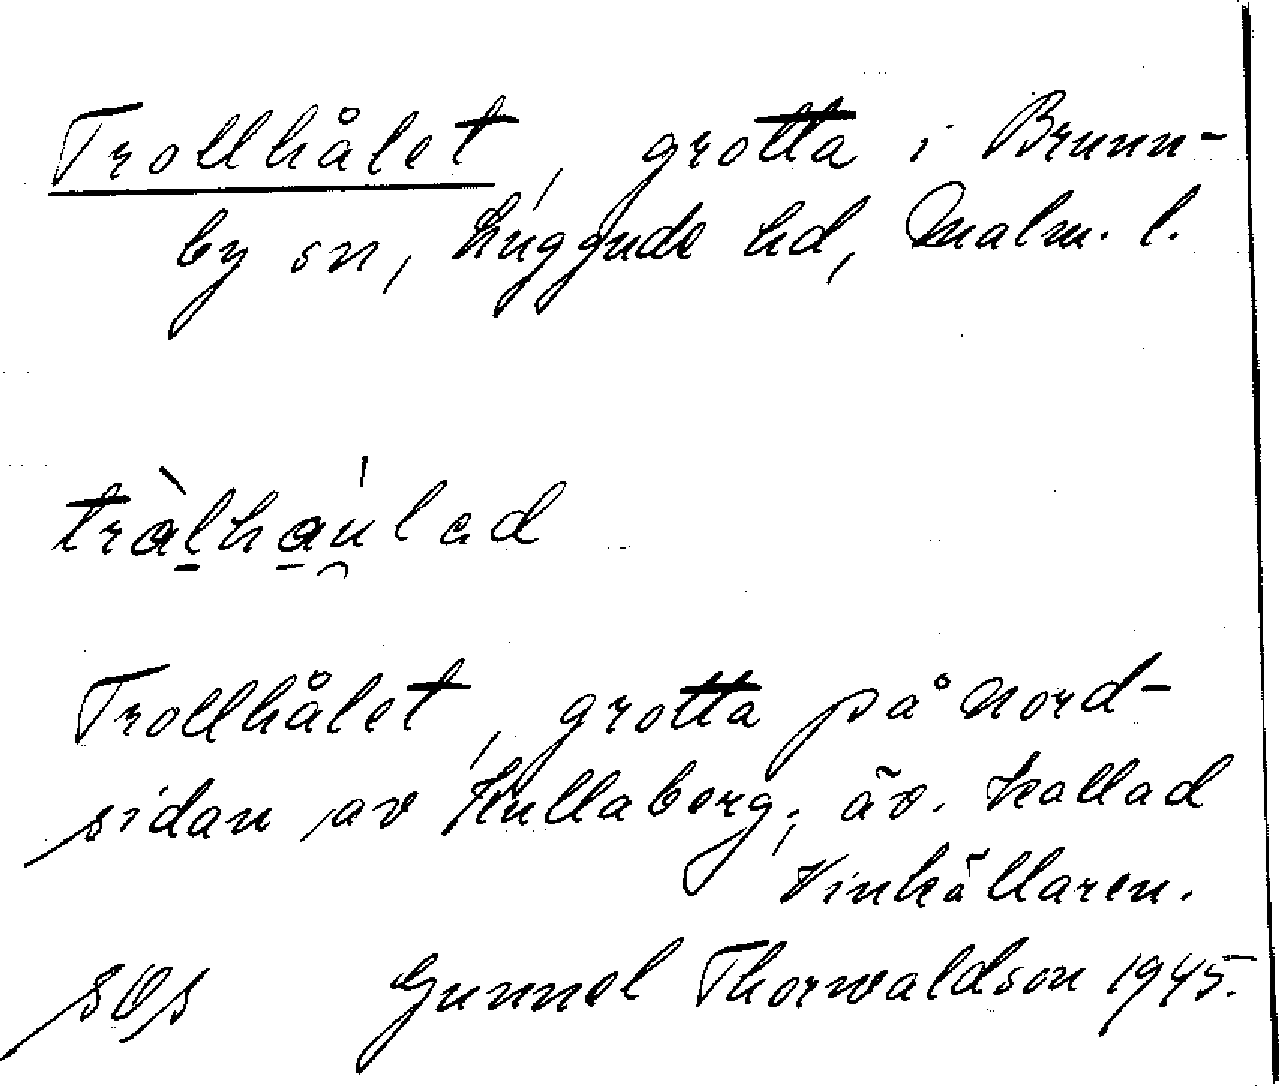 Trollhålet, grotta i Brunn-
by sn, Luggude hd, Malm. l.
tràlha̱u̯ləd
Trollhålet, grotta på nord-
sidan av Kullaberg; äv. kallad
Vinkällaren.
Gunnel Thorwaldson 1945.